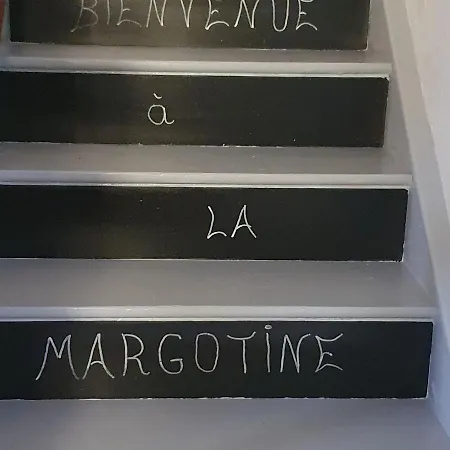 BIENVENUE
à
LA
MARGOTINE